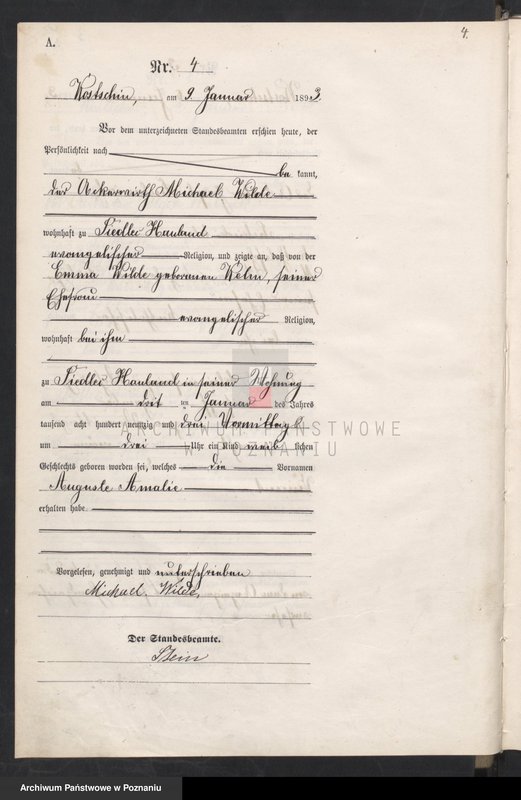 4.
A.
Nr. 4
Kostschin, am 9. Januar 1893.
Vor dem unterzeichneten Standesbeamten erschien heute, der
Persönlichkeit nach
be kannt,
der Ackerwirth Michael Wilde
wohnhaft zu Siedlec Hauland
evangelischer Religion, und zeigte an, daß von der
Emma Wilde geborenen Kelm, seiner
Ehefrau
evangelischer Religion,
wohnhaft bei ihm
zu Siedlec Hauland in seiner Wohnung
am drit ten Januar des Jahres
tausend acht hundert neunzig und drei Vormittags
um drei Uhr ein Kind weib lichen
Geschlechts geboren worden sei, welches die Vornamen
Auguste Amalie
erhalten habe.
Vorgelesen, genehmigt und unterschrieben
Michael Wilde.
Der Standesbeamte.
Stein
ARCHIWUM PAŃSTWOWE
W POZNANIU
Archiwum Państwowe w Poznaniu